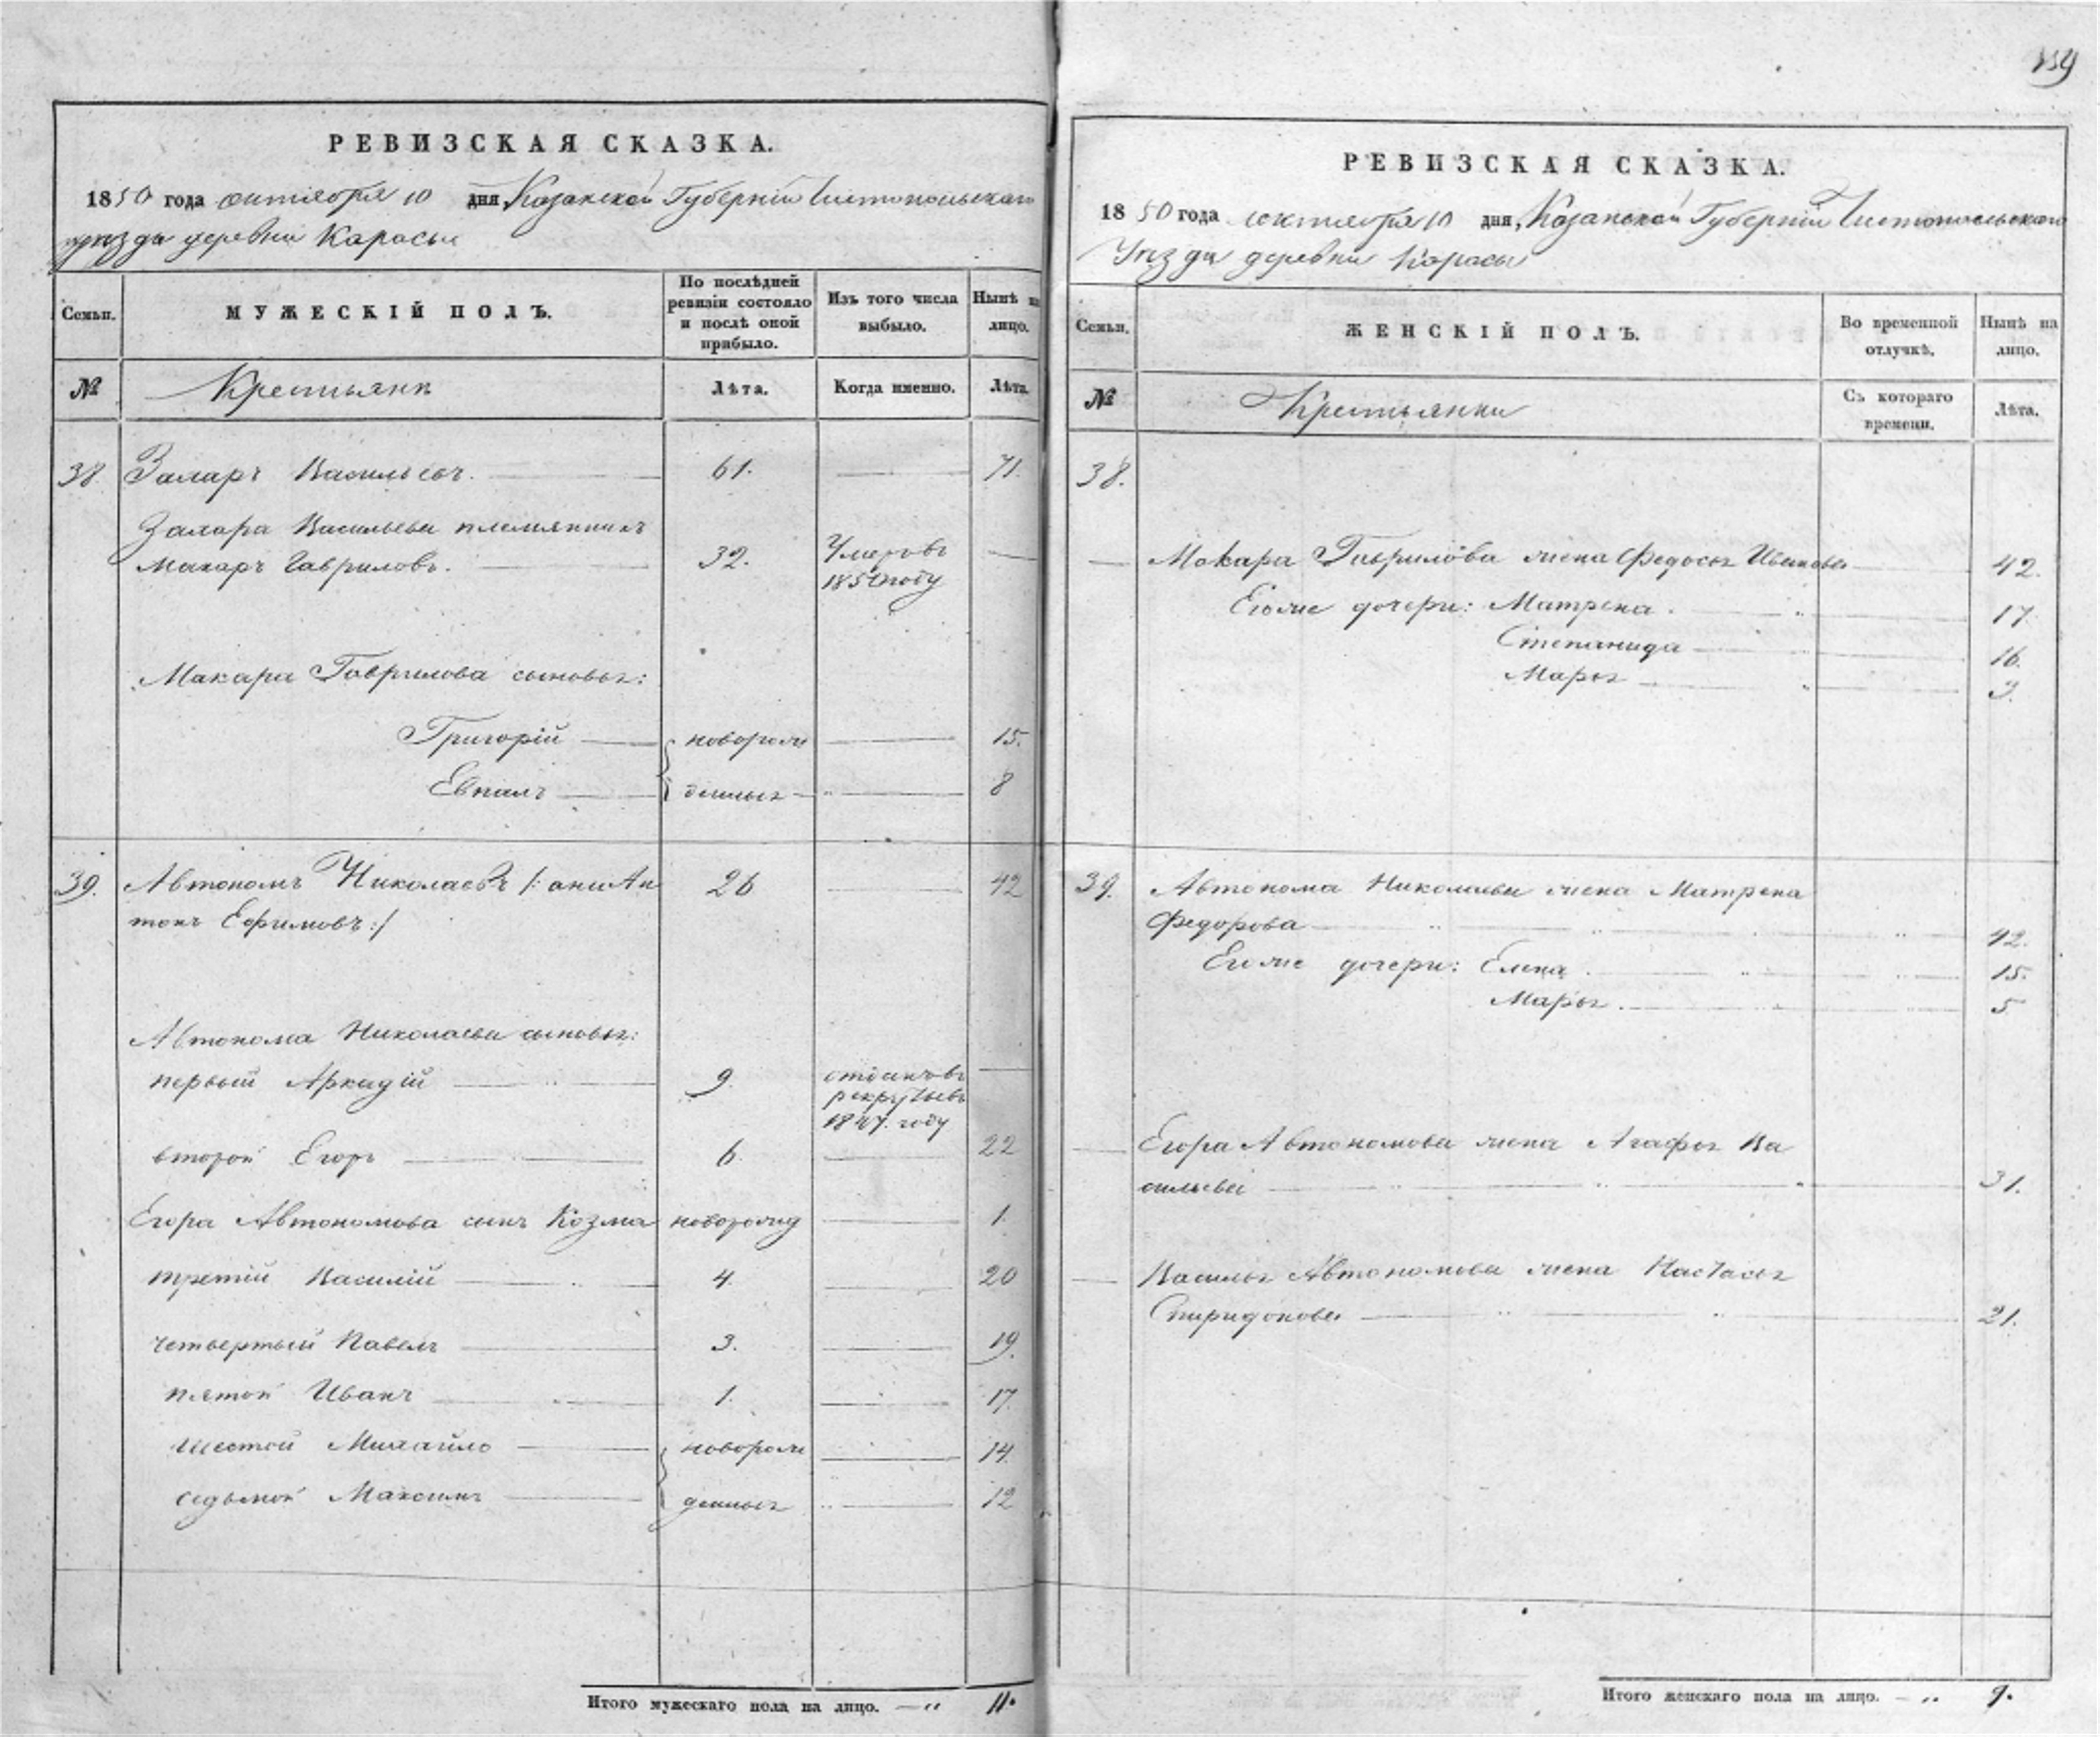 РЕВИЗСКАЯ СКАЗКА.
1850 года октября 10 дня, Казанской Губернiи Чистопольскаго
уѣзда деревни Карасы
Семьи.
МУЖЕСКIЙ ПОЛЪ.
По послѣдней ревизiи состояло и послѣ оной прибыло.
Изъ того числа выбыло.
Нынѣ на лицо.
№
Крестьянъ
Лѣта.
Когда именно.
Лѣта.
38. Захаръ Васильевъ. 61. 71.
Захара Васильева племянникъ
Макаръ Гавриловъ. 32. Умеръ въ
1850 году
Макара Гаврилова сыновья:
Григорiй новорож 15.
денныя 8
39. Автономъ Николаевъ /: онъ Ан 26 42
тонъ Ефимовъ :/
Автонома Николаева сыновья:
первый Аркадiй 9. отданъ въ
рекруты въ
1847. году
второй Егоръ 6. 22
Егора Автономова сынъ Козма новорожд 1.
третiй Василiй 4. 20
четвертый Павелъ 3. 19.
пятой Иванъ 1. 17.
шестой Михайло новорож 14.
седьмой Максимъ денныя 12
Итого мужескаго пола на лицо. 11.
159
РЕВИЗСКАЯ СКАЗКА.
1850 года октября 10 дня, Казанской Губернiи Чистопольскаго
Уѣзда деревни Карасы
Семьи.
ЖЕНСКIЙ ПОЛЪ.
Во временной отлучкѣ.
Нынѣ на лицо.
№
Крестьянки
Съ котораго времени.
Лѣта.
38.
Макара Гаврилова жена Федосья Иванова 42.
Егоже дочери: Матрена. 17.
Степанида 16.
Марья 3.
39. Автонома Николаева жена Матрена
Федорова 42.
Егоже дочери: Елена. 15.
Марья. 5
Егора Автономова жена Агафья Ва
сильева 31.
Василья Автономова жена Настасья
Спиридонова 21.
Итого женскаго пола на лицо. 9.